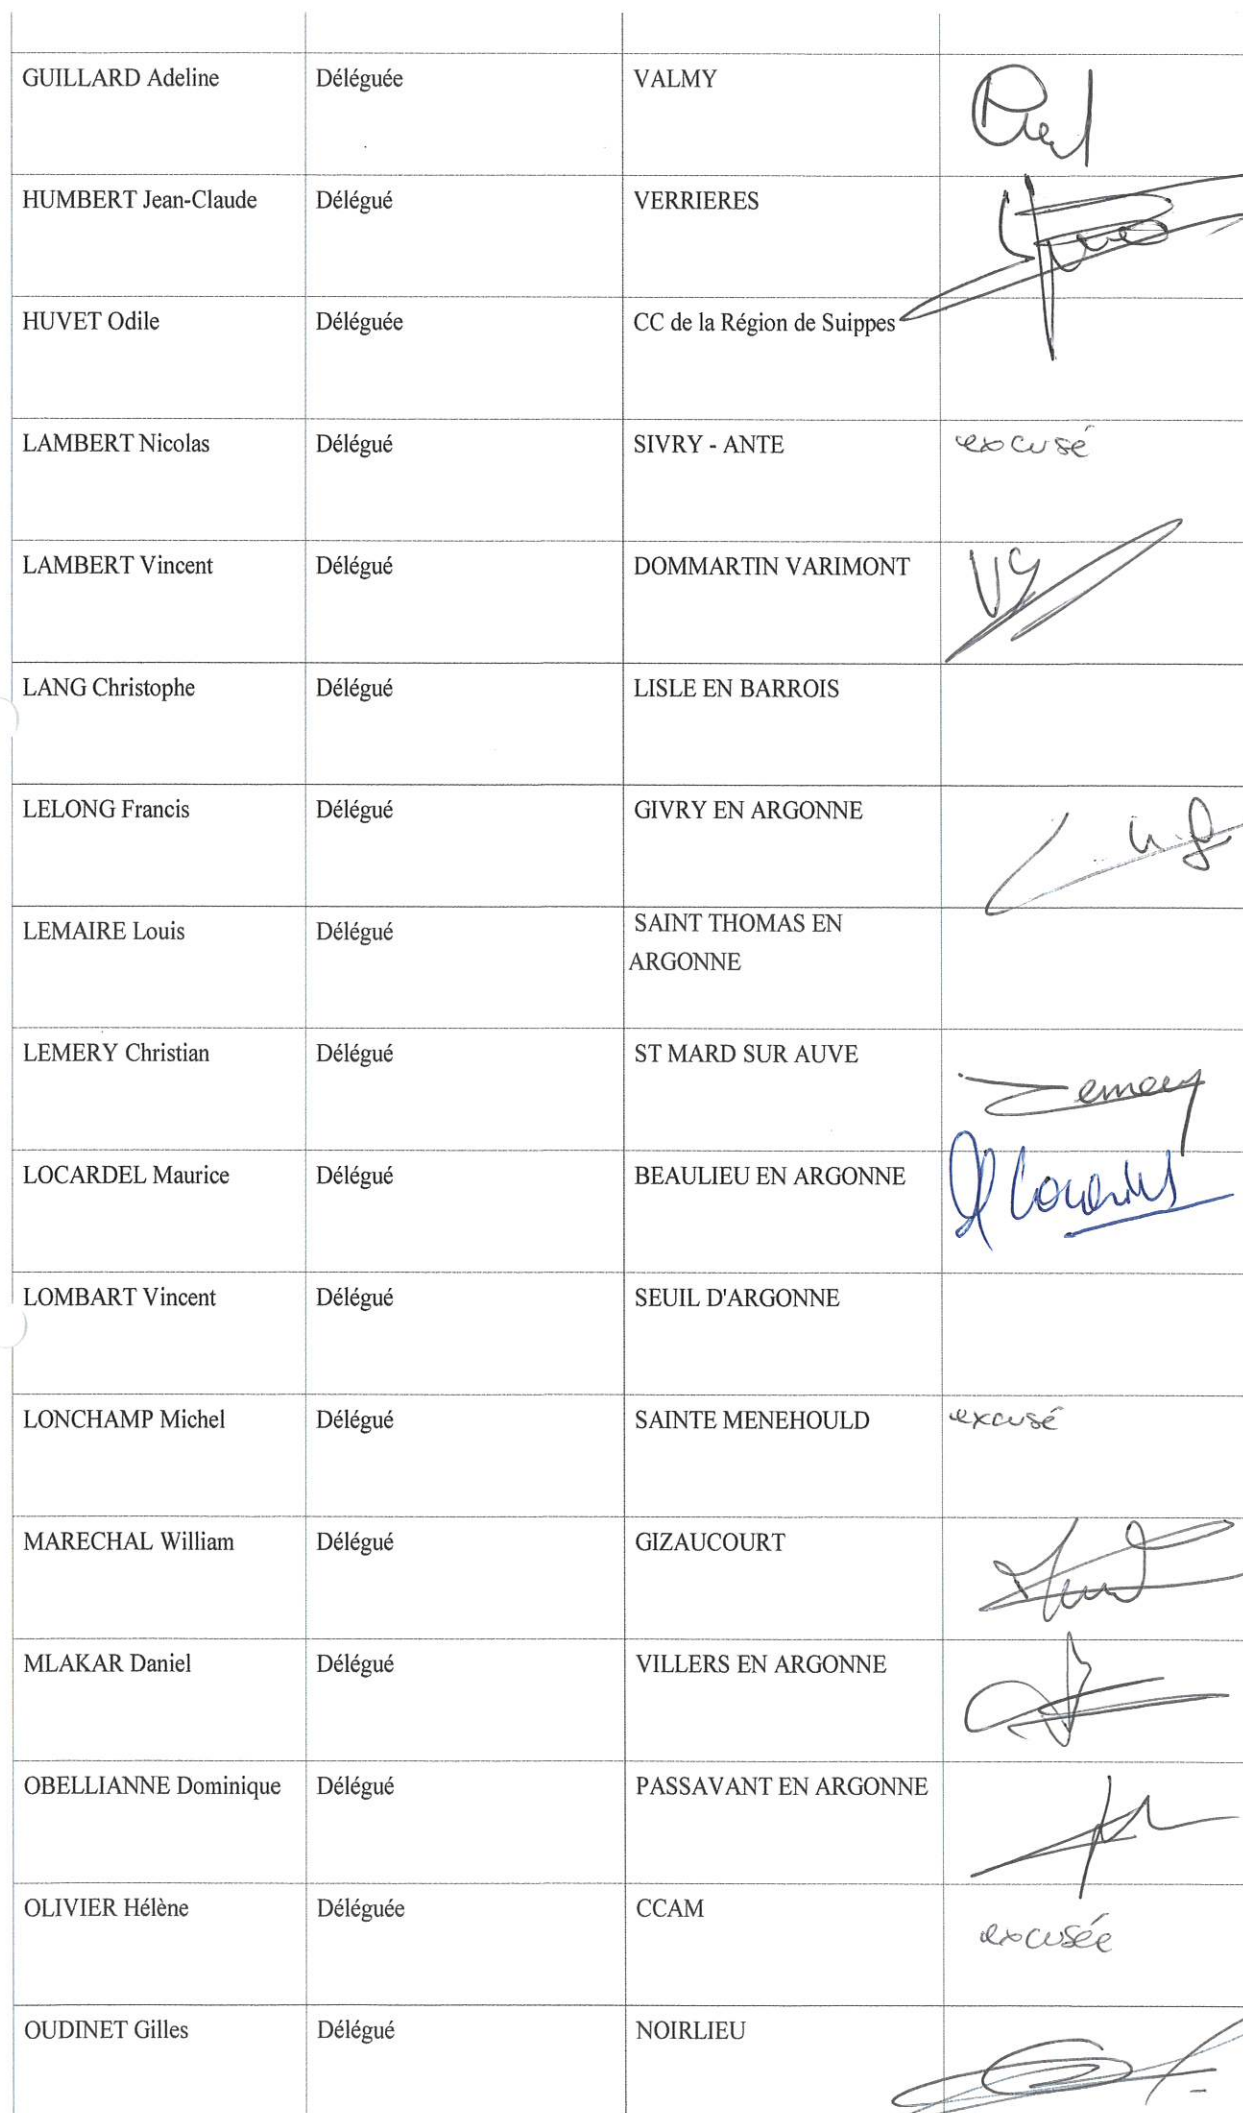 GUILLARD Adeline Déléguée VALMY
HUMBERT Jean-Claude Délégué VERRIERES
HUVET Odile Déléguée CC de la Région de Suippes
LAMBERT Nicolas Délégué SIVRY - ANTE excusé
LAMBERT Vincent Délégué DOMMARTIN VARIMONT
LANG Christophe Délégué LISLE EN BARROIS
LELONG Francis Délégué GIVRY EN ARGONNE
LEMAIRE Louis Délégué SAINT THOMAS EN
ARGONNE
LEMERY Christian Délégué ST MARD SUR AUVE
LOCARDEL Maurice Délégué BEAULIEU EN ARGONNE
LOMBART Vincent Délégué SEUIL D'ARGONNE
LONCHAMP Michel Délégué SAINTE MENEHOULD excusé
MARECHAL William Délégué GIZAUCOURT
MLAKAR Daniel Délégué VILLERS EN ARGONNE
OBELLIANNE Dominique Délégué PASSAVANT EN ARGONNE
OLIVIER Hélène Déléguée CCAM excusée
OUDINET Gilles Délégué NOIRLIEU